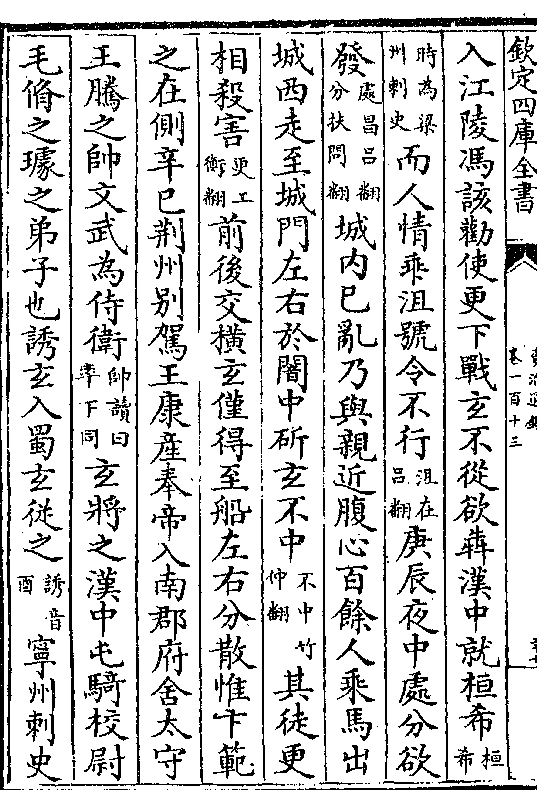 欽定四庫全書
資治通鑑
卷一百十三
入江陵馮該勸使更下戰玄不從欲犇漢中就桓希桓希
時為梁州刺史而人情乖沮號令不行沮在呂翻庚辰夜中處分欲
發處昌呂翻分扶問翻城内已亂乃與親近腹心百餘人乘馬出
城西走至城門左右於闇中斫玄不中不中竹仲翻其徒更
相殺害更工衡翻前後交橫玄僅得至船左右分散惟卞範
之在側辛巳荆州别駕王康產奉帝入南郡府舍太守
王騰之帥文武為侍衛帥讀曰率下同玄將之漢中屯騎校尉
毛脩之璩之弟子也誘玄入蜀玄從之誘音酉寧州刺史